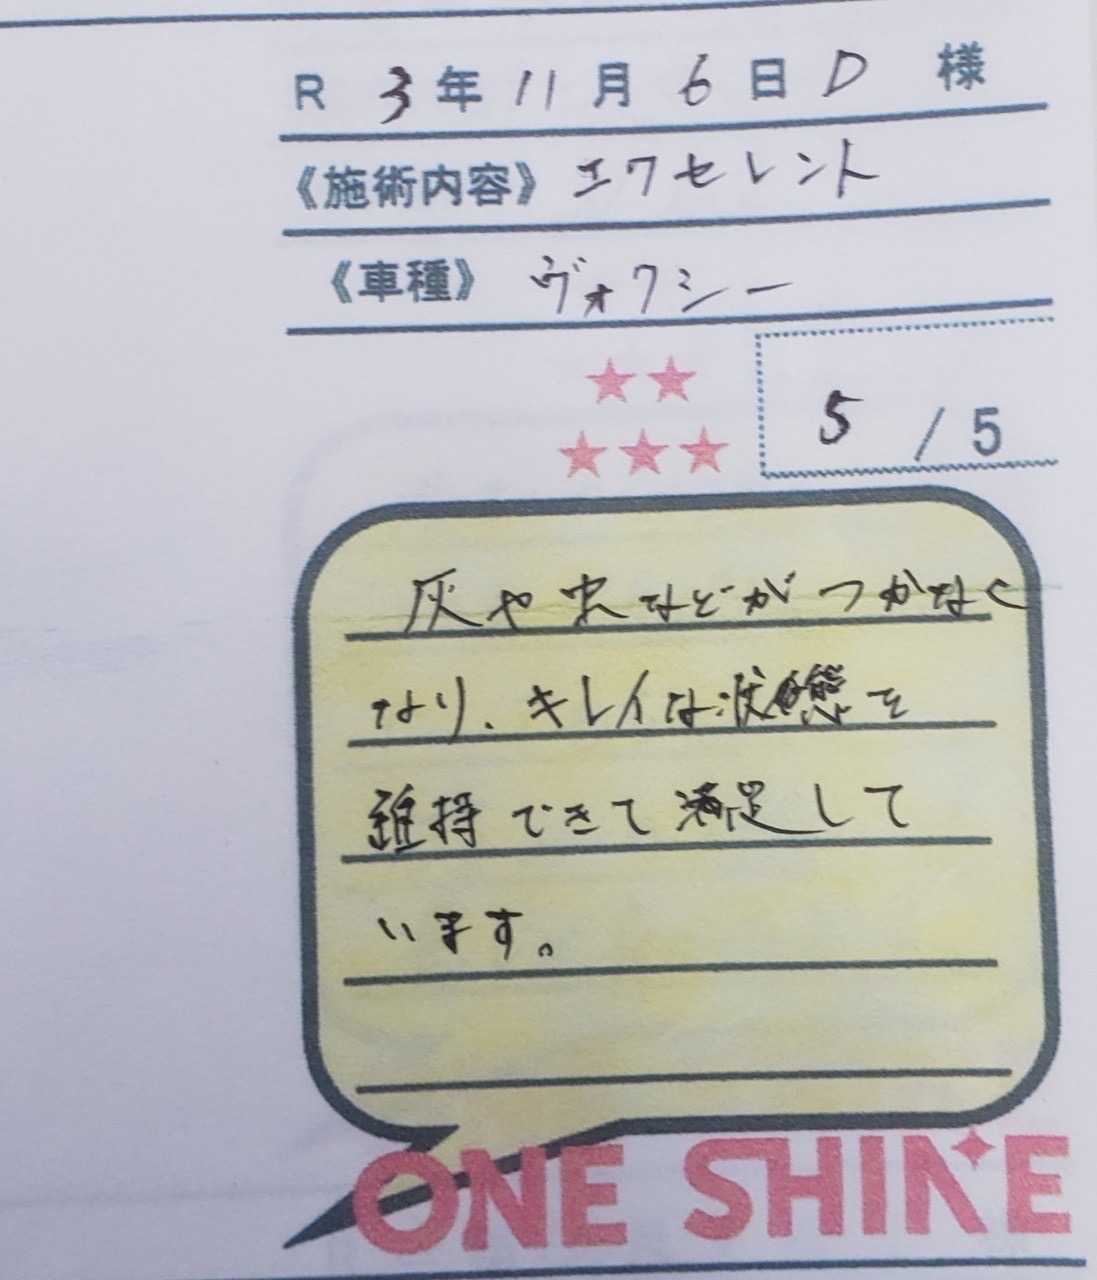 R 3年 11月 6日 D 様
《施術内容》 エクセレント
《車種》 ヴォクシー
5 / 5
灰や虫などがつかなく
なり、キレイな状態を
維持できて満足して
います。
ONE SHINE